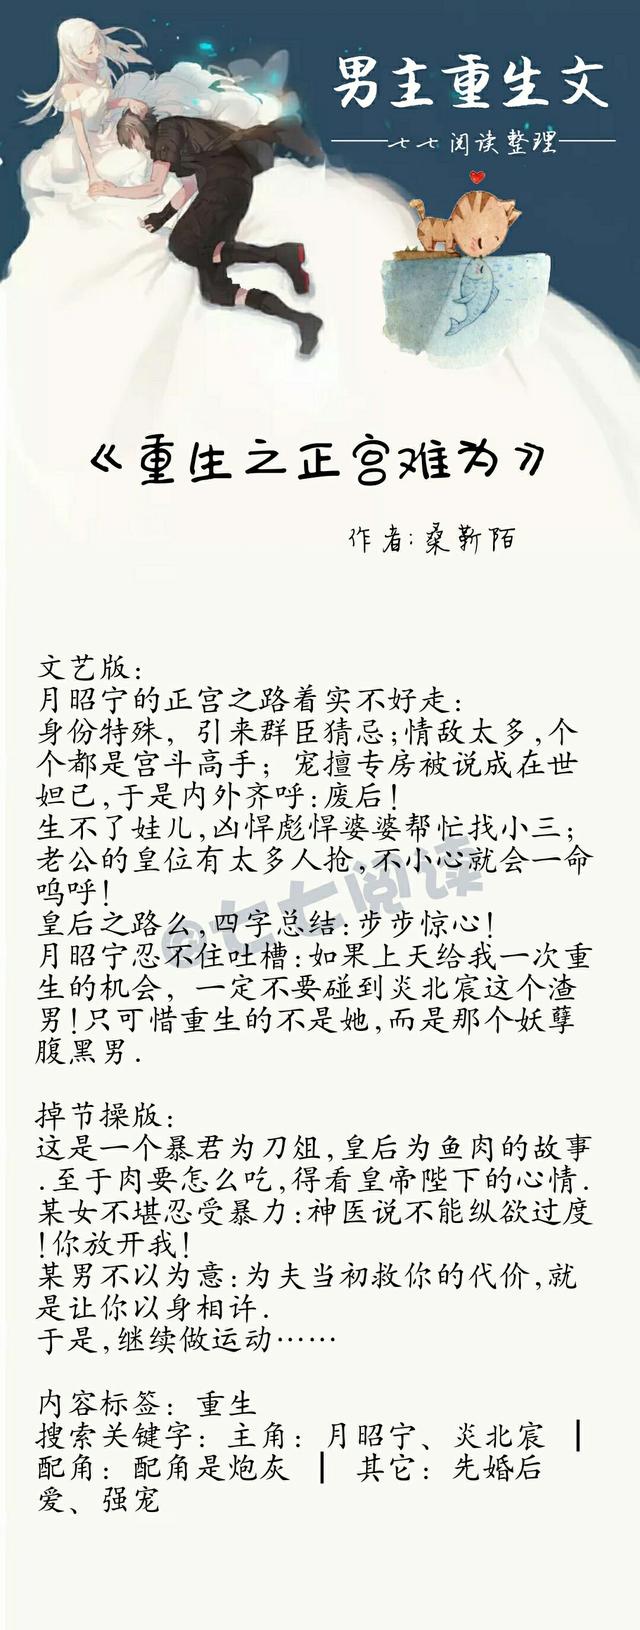 男主重生文
——七七阅读整理——
《重生之正宫难为》
作者:桑靳陌
文艺版:
月昭宁的正宫之路着实不好走:
身份特殊，引来群臣猜忌;情敌太多,个
个都是宫斗高手；宠擅专房被说成在世
妲己,于是内外齐呼:废后!
生不了娃儿,凶悍彪悍婆婆帮忙找小三;
老公的皇位有太多人抢,不小心就会一命
呜呼!
皇后之路么,四字总结:步步惊心!
月昭宁忍不住吐槽:如果上天给我一次重
生的机会，一定不要碰到炎北宸这个渣
男!只可惜重生的不是她,而是那个妖孽
腹黑男.
掉节操版:
这是一个暴君为刀俎,皇后为鱼肉的故事
.至于肉要怎么吃,得看皇帝陛下的心情.
某女不堪忍受暴力:神医说不能纵欲过度
!你放开我!
某男不以为意:为夫当初救你的代价,就
是让你以身相许.
于是,继续做运动……
内容标签：重生
搜索关键字：主角：月昭宁、炎北宸 ┃
配角：配角是炮灰 ┃ 其它：先婚后
爱、强宠
@七七阅读